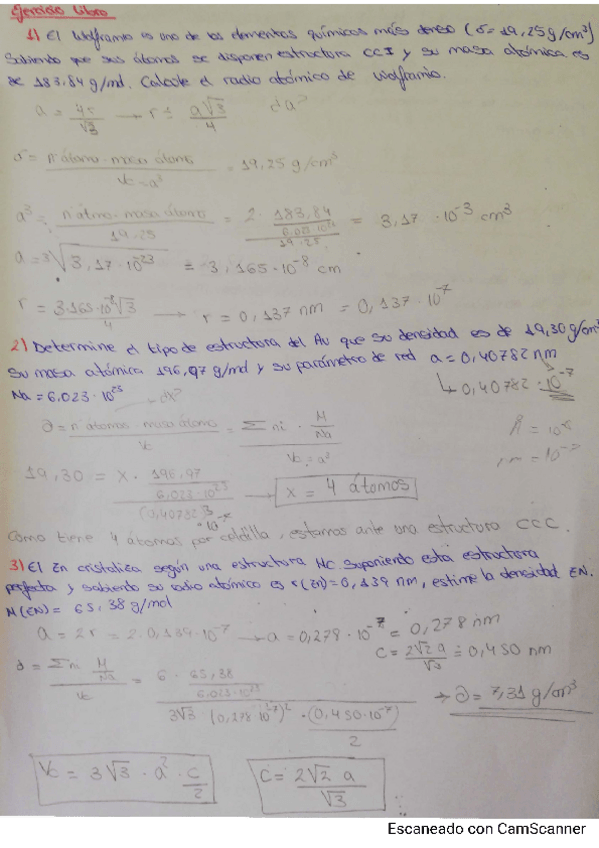 Ejercicio Libro
1) El Wolframio es uno de los elementos químicos más denso (σ = 19,25 g/cm³)
Sabiendo que sus átomos se disponen estructura CCI y su masa atómica es
de 183,84 g/mol. Calcule el radio atómico de Wolframio.
a = 4r/√3 → r = a√3/4
σ = nº átomo · masa átomo / Vc = a³ = 19,25 g/cm³
a³ = nº átmo · masa átomo / 19.25 = 2 · 183,84 / 6.023·10²³ / 19.25 = 3,17 · 10⁻³ cm³
a = ³√3,17·10⁻²³ = 3,165·10⁻⁸ cm
r = 3.165·10⁻⁸√3 / 4 → r = 0,137 nm = 0,137 · 10⁻⁷
2) Determine el tipo de estructura del Au que su densidad es de 19,30 g/cm³
su masa atómica 196,97 g/mol y su parámetro de red a = 0,40782 nm
Na = 6.023 · 10²³
↳ 0,40782 · 10⁻⁷
∂ = nº átomos masa átomo / Vc = Σ ni · M/Na / Vc = a³
19,30 = x · 196,97 / 6,023·10²³ / (0,40782·10⁻⁷)³ → x = 4 átomos
Como tiene 4 átomos por celdilla, estamos ante una estructura CCC.
3) El Zn cristaliza según una estructura HC. Suponiendo esta estructura
perfecta y sabiendo su radio atómico es r(Zn) = 0,139 nm, estime la densidad EN.
M(EN) = 65,38 g/mol
a = 2r = 2 · 0,139·10⁻⁷ → a = 0,278 · 10⁻⁷ = 0,278 nm
C = 2√2 a / √3 = 0,450 nm
∂ = Σ ni M/Na / Vc = 6 · 65,38 / 6,023·10²³ / 3√3 · (0,278·10⁻⁷)² · (0,450·10⁻⁷) / 2 → ∂ = 7,31 g/cm³
Vc = 3√3 · a² · c/2
C = 2√2 a / √3
Escaneado con CamScanner